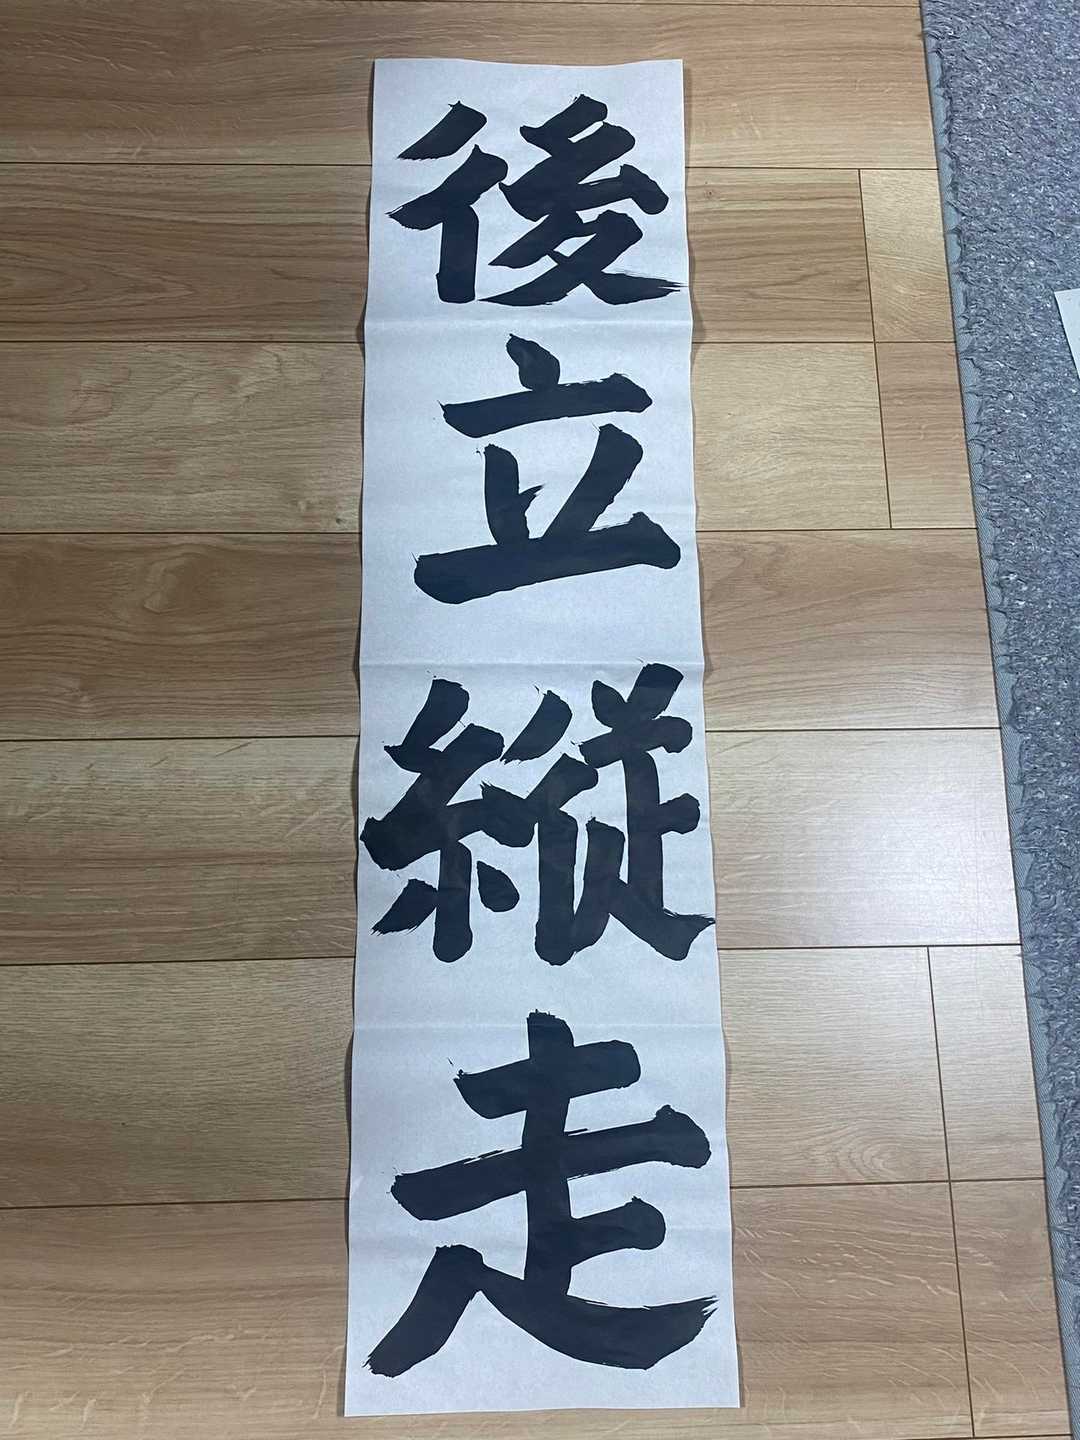 後立縦走